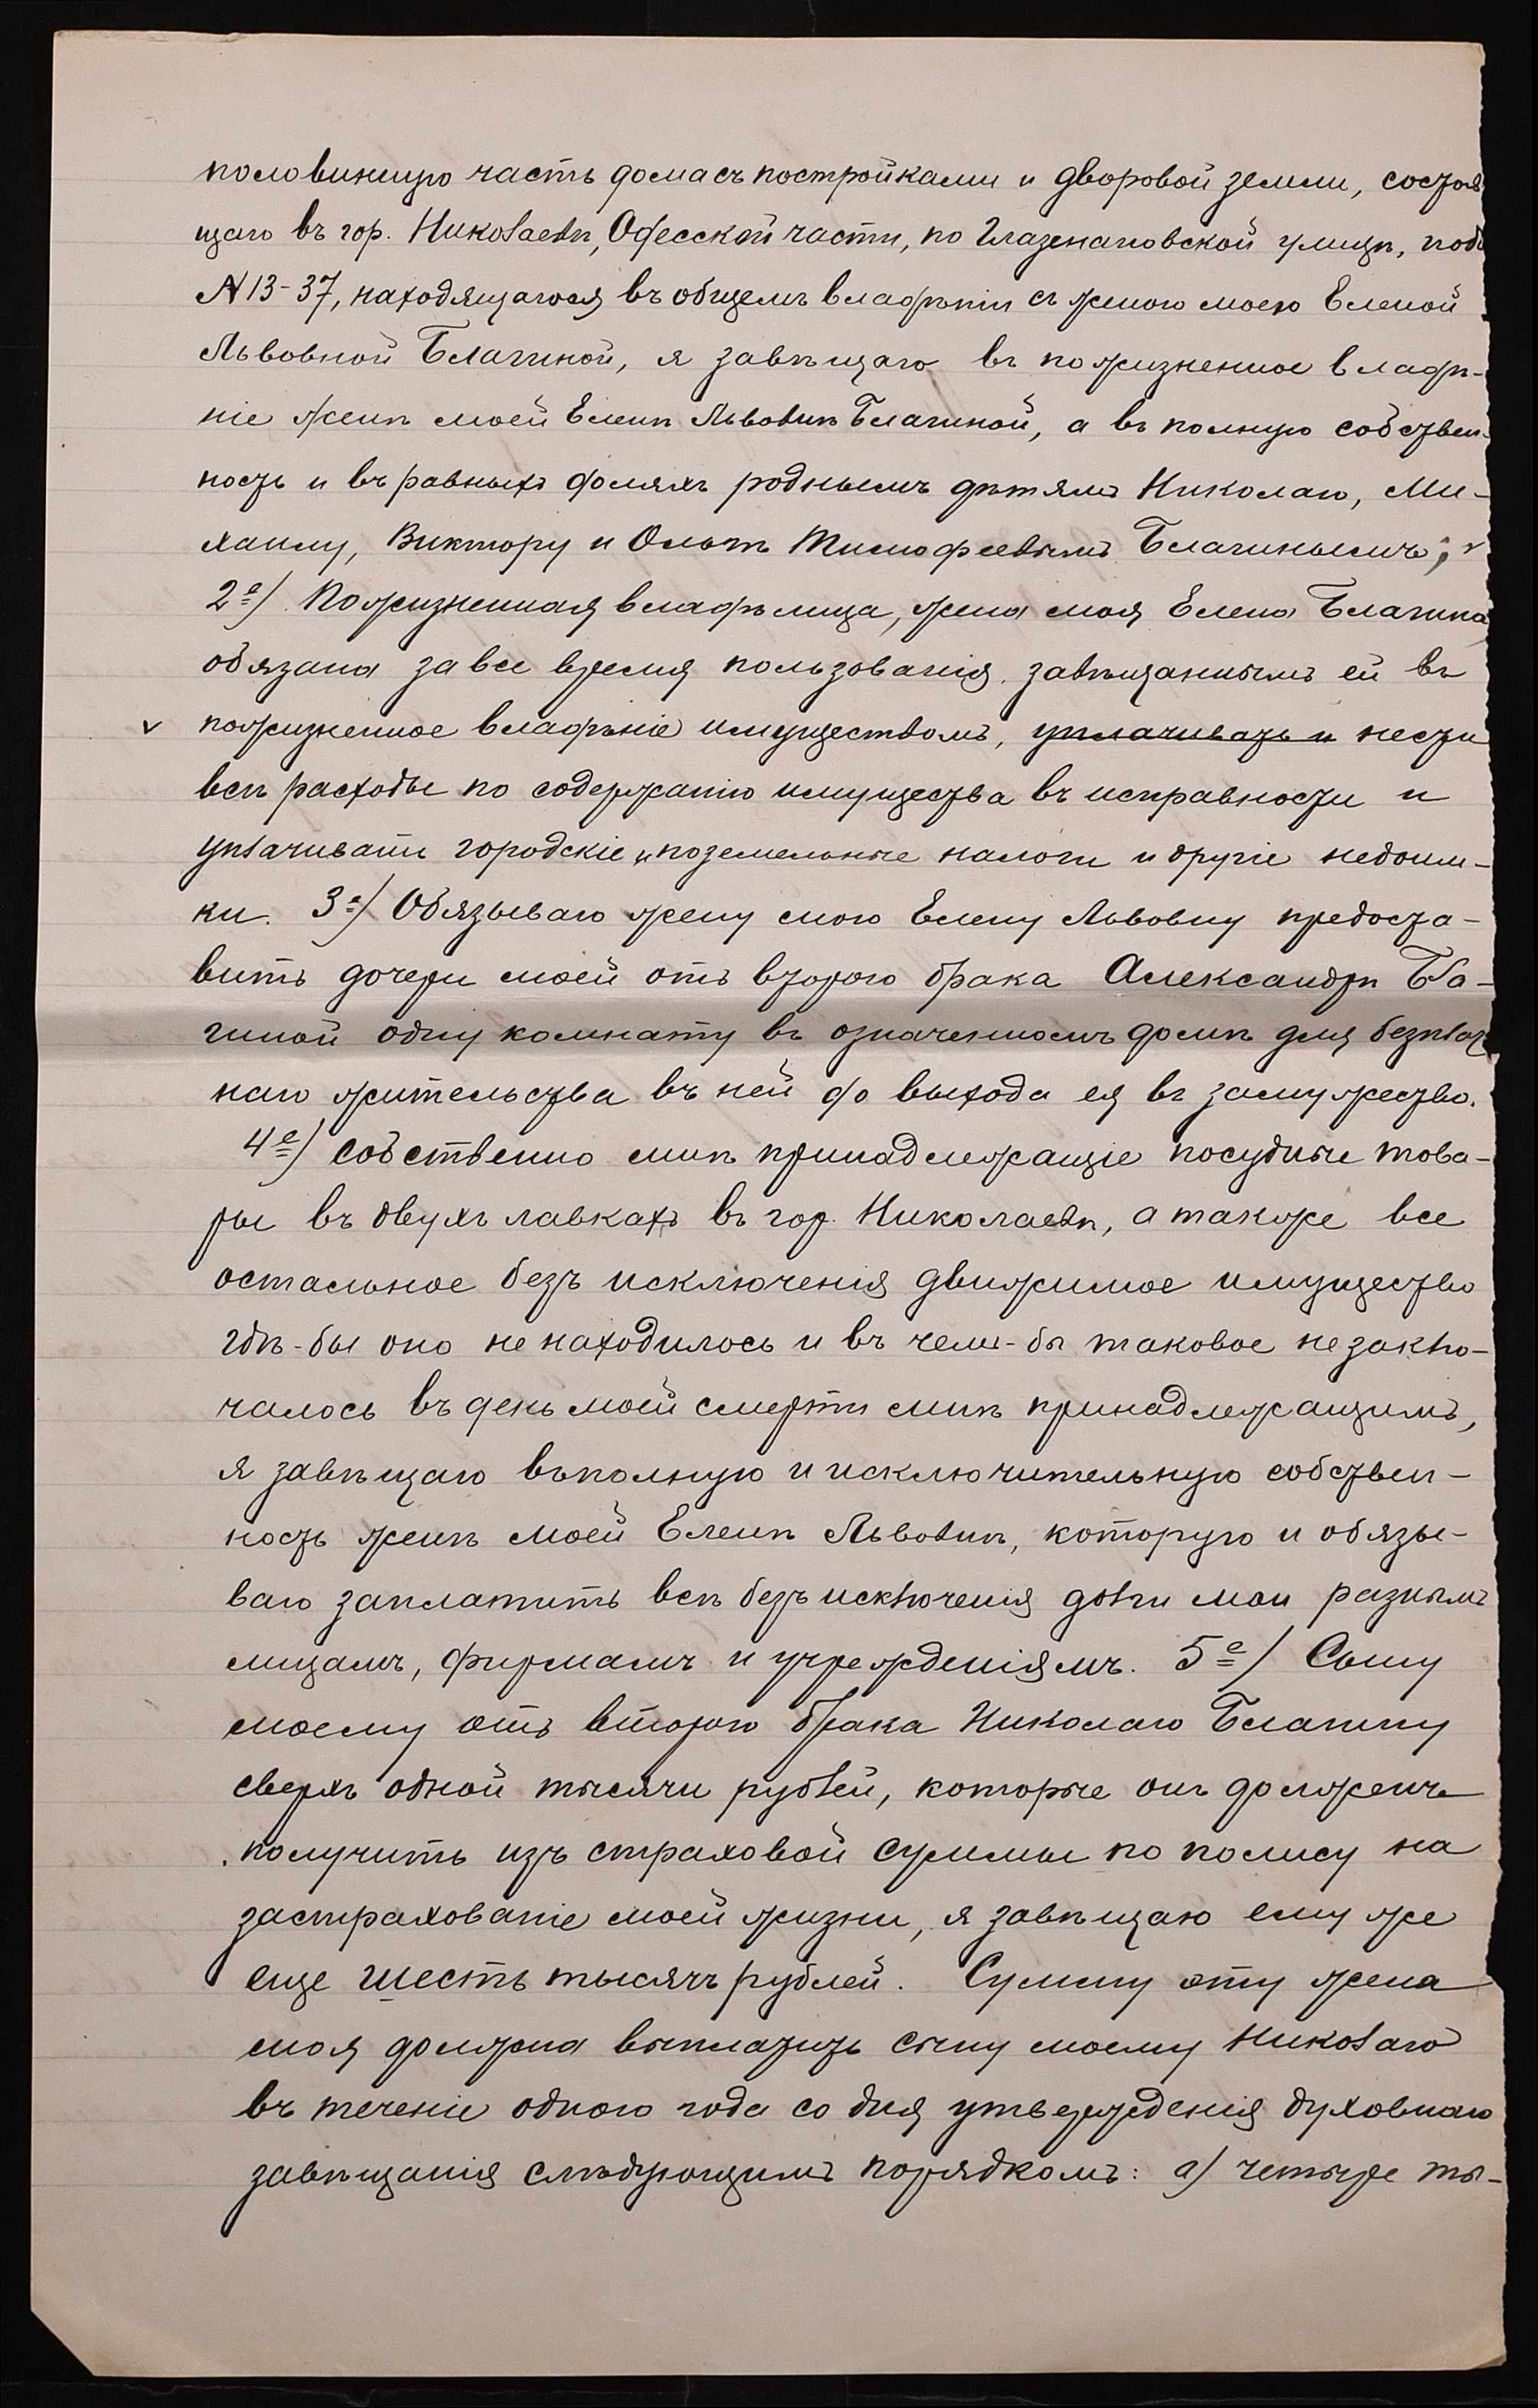 половинную часть дома съ постройками и дворовой земли, состоя
щаго въ гор. Николаевѣ, Одесской части, по Глазенаповской улицѣ, подъ
№ 13-37, находящагося въ общемъ владѣніи съ женою моею Еленой
Львовной Благиной, я завѣщаю въ пожизненное владѣ-
ніе женѣ моей Еленѣ Львовнѣ Благиной, а въ полную собствен-
ность и въ равныхъ доляхъ роднымъ дѣтямъ Николаю, Ми-
хаилу, Виктору и Ольгѣ Тимофеевымъ Благинымъ;
2е) Пожизненная владѣлица, жена моя Елена Благина
обязана за все время пользованія завѣщаннымъ ей въ
пожизненное владѣніе имуществомъ, уплачивать и нести
всѣ расходы по содержанію имущества въ исправности и
уплачивать городскіе и поземельные налоги и другіе недоим-
ки. 3е) Обязываю жену мою Елену Львовну предоста-
вить дочери моей отъ второго брака Александрѣ Бла-
гиной одну комнату въ означенномъ домѣ для безплат
наго жительства въ ней до выхода ея въ замужество.
4е) Собственно мнѣ принадлежащіе посудные това-
ры въ двухъ лавкахъ въ гор. Николаевѣ, а также все
остальное безъ исключенія движимое имущество
гдѣ-бы оно не находилось и въ чемъ-бы таковое не заклю-
чалось въ день моей смерти мнѣ принадлежащимъ,
я завѣщаю въ полную и исключительную собствен-
ность женѣ моей Еленѣ Львовнѣ, которую и обязы-
ваю заплатить всѣ безъ исключенія долги мои разнымъ
лицамъ, фирмамъ и учрежденіямъ. 5е) Сыну
моему отъ второго брака Николаю Благину
сверхъ одной тысячи рублей, которые онъ долженъ
получить изъ страховой суммы по полису на
застрахованіе моей жизни, я завѣщаю ему же
еще шесть тысячъ рублей. Сумму эту жена
моя должна выплатить сыну моему Николаю
въ теченіе одного года со дня утвержденія духовнаго
завѣщанія слѣдующимъ порядкомъ: а) четыре ты-